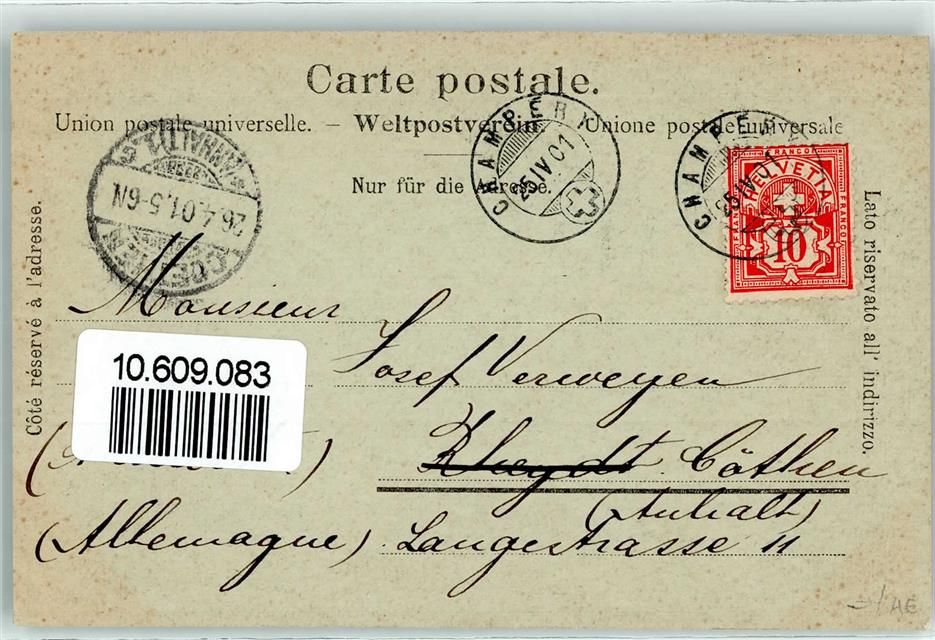 Carte postale.
Union postale universelle. – Weltpostverein. – Unione postale universale
Nur für die Adresse.
Côté réservé à l'adresse.
Lato riservato all' indirizzo.
CHAMPERY
25 IV 01
CHAMPERY
25 IV 01
(ANHALT)
26.4.01.5-6N
FRANCO
HELVETIA
FRANCO
FRANCO
10
Monsieur
Josef Verweyen
Rheydt Cöthen
(Anhalt)
(Allemagne) Langestrasse 11
10.609.083
AE